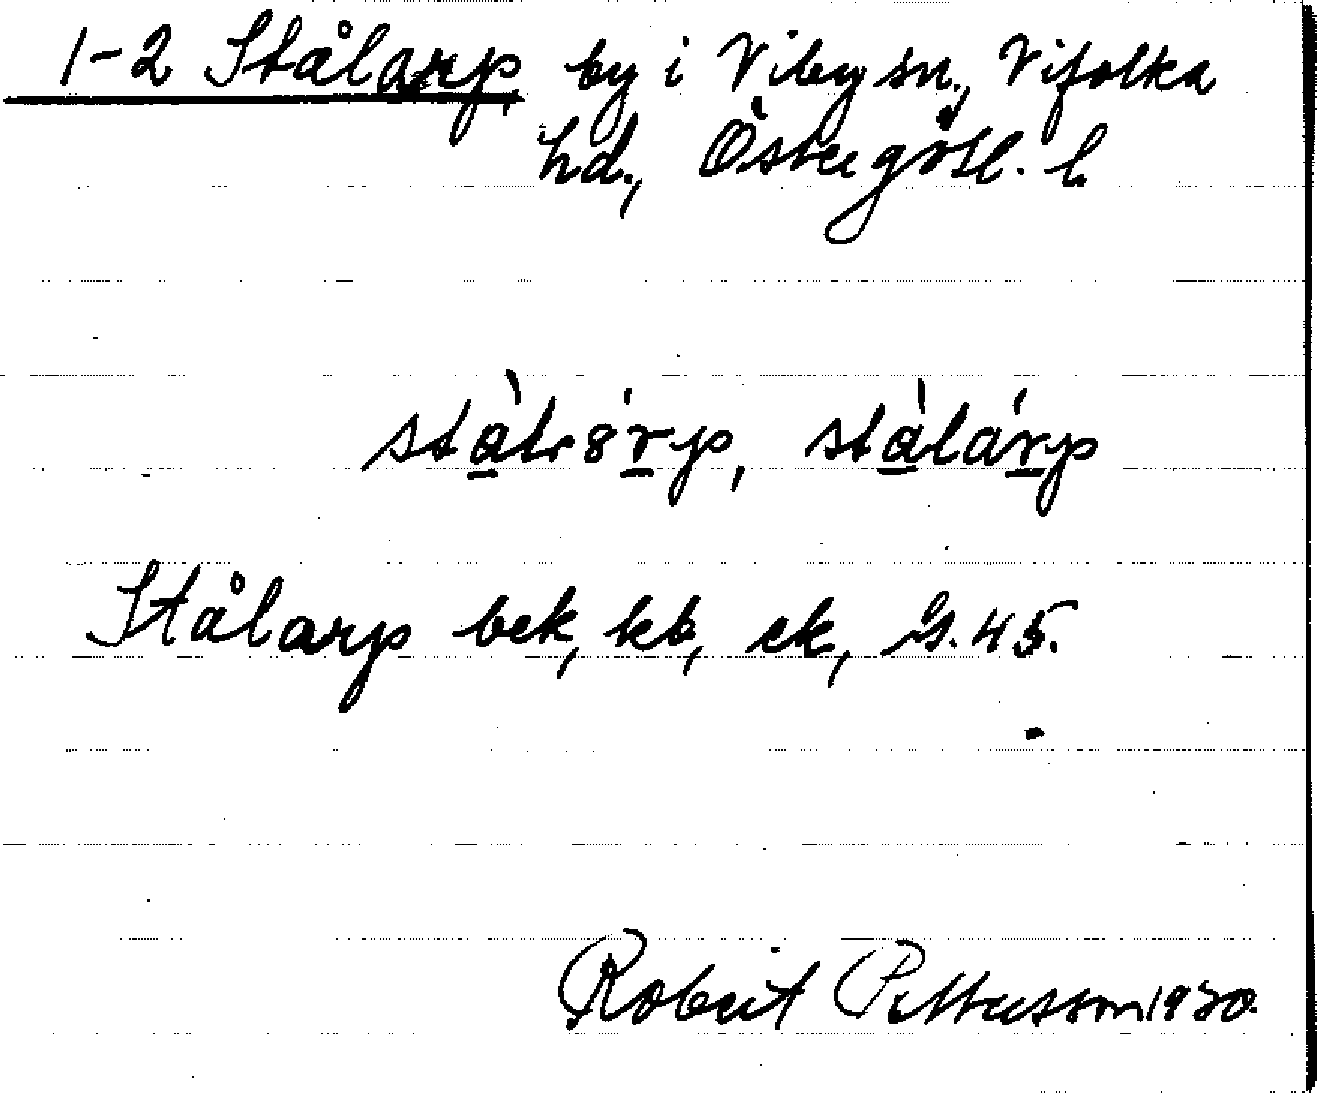 1-2 Stålarp, by i Viby sn., Vifolka
hd., Östergötl. l.
stàlárp
Stålarp bek, kb, ek, G. 45.
Robert Pettersson 1930.